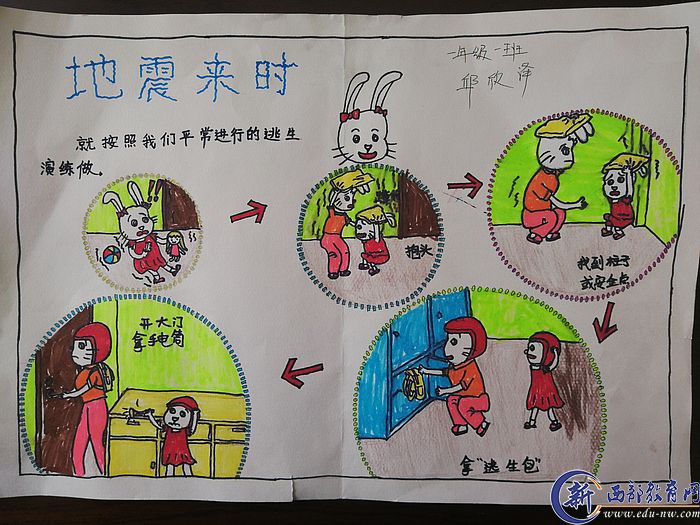 地震来时
一年级一班
邱欣泽
就按照我们平常进行的逃生
演练做。
!!
抱头
找到柱子
或安全点
拿"逃生包"
开大门
拿手电筒
新 西部教育网
www.edu-nw.com